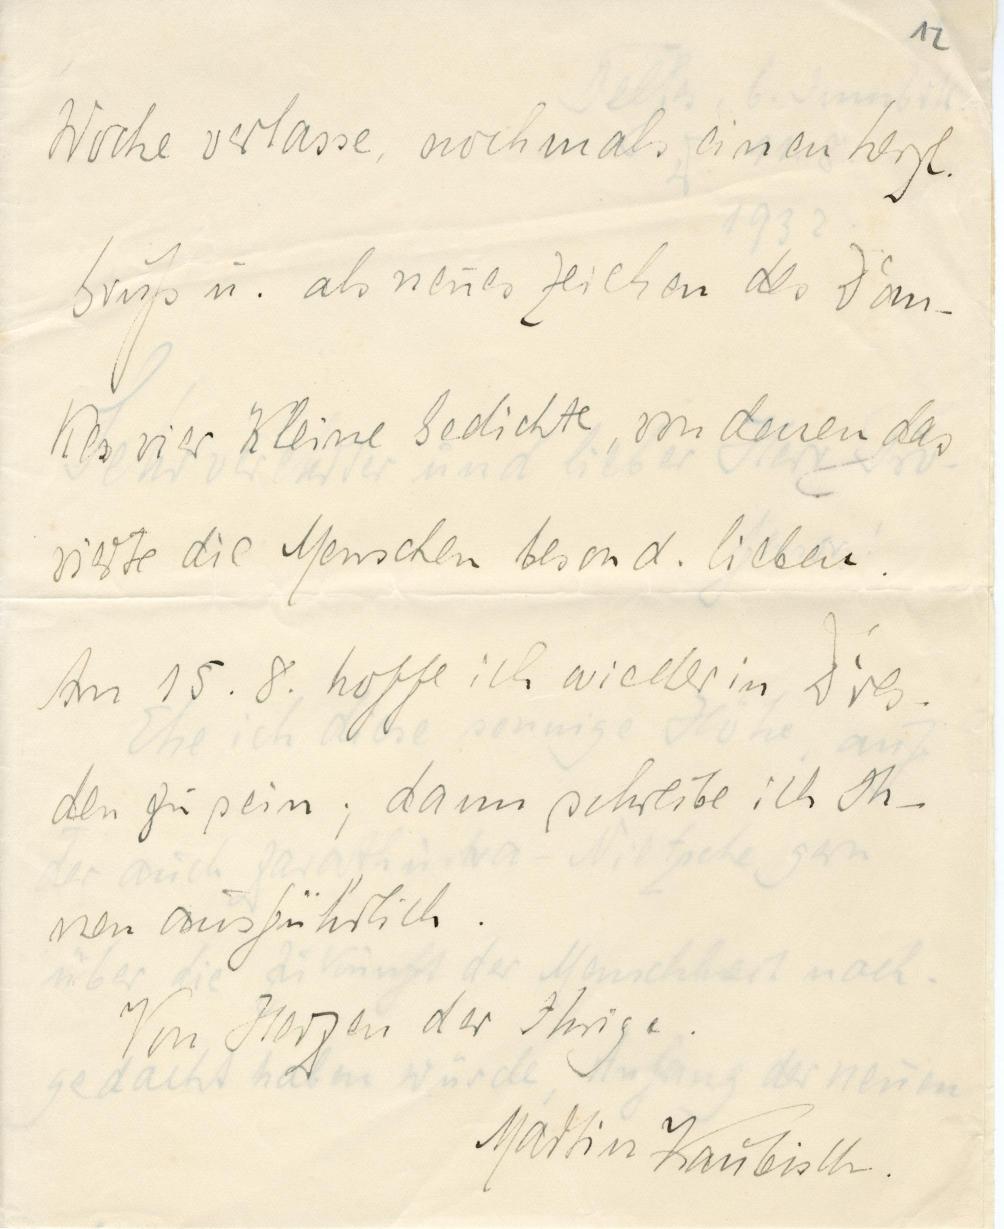 12
Woche verlasse, nochmals einen herzl.
Gruß u. als neues Zeichen des Dan-
kes vier kleine Gedichte, von denen das
vierte die Menschen besond. lieben.
Am 15. 8. hoffe ich wieder in Dres-
den zu sein; dann schreibe ich Ih-
nen ausführlich.
Von Herzen der Ihrige.
Martin Kaubisch.